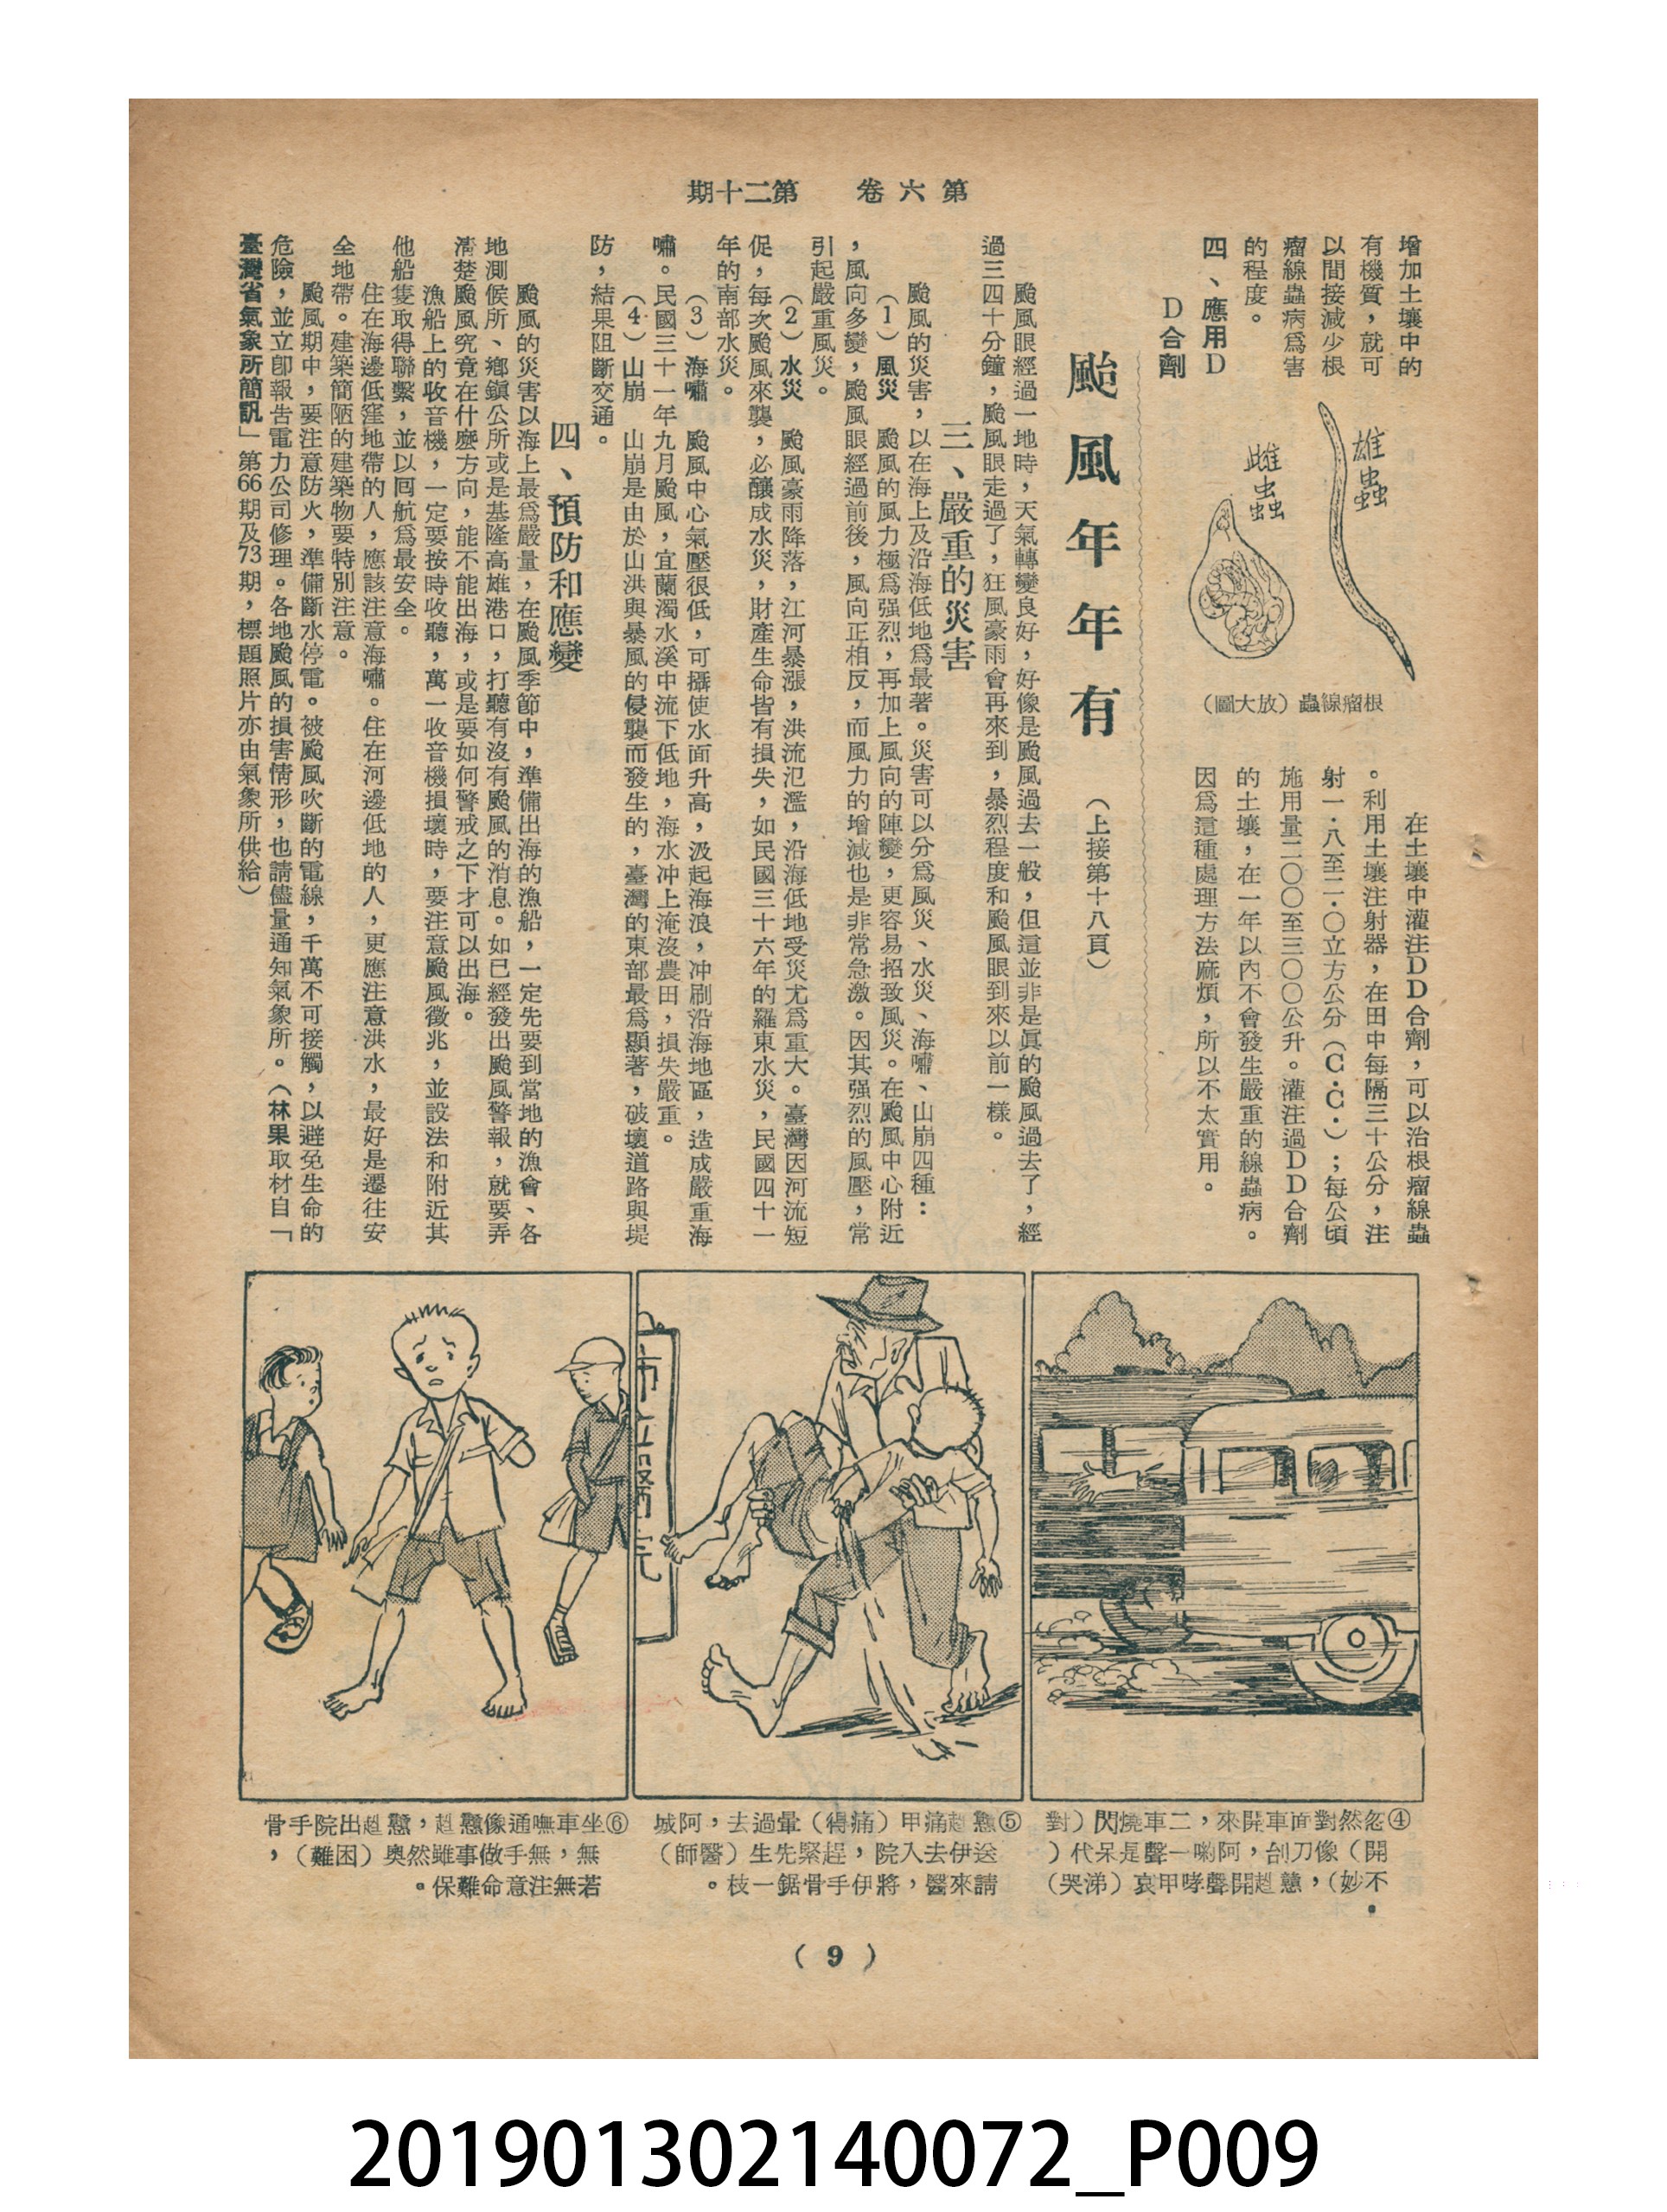 第六卷　第二十期
增加土壤中的
有機質，就可
以間接減少根
瘤線蟲病爲害
的程度。
四、應用D
D合劑
雄蟲
雌蟲
根瘤線蟲（放大圖）
在土壤中灌注DD合劑，可以治根瘤線蟲
。利用土壤注射器，在田中每隔三十公分，注
射一·八至二·〇立方公分（C.C.）；每公頃
施用量二〇〇至三〇〇公升。灌注過DD合劑
的土壤，在一年以內不會發生嚴重的線蟲病。
因爲這種處理方法麻煩，所以不太實用。
颱風年年有（上接第十八頁）
颱風眼經過一地時，天氣轉變良好，好像是颱風過去一般，但這並非是眞的颱風過去了，經
過三四十分鐘，颱風眼走過了，狂風豪雨會再來到，暴烈程度和颱風眼到來以前一樣。
三、嚴重的災害
颱風的災害，以在海上及沿海低地爲最著。災害可以分爲風災、水災、海嘯、山崩四種：
（1）風災　颱風的風力極爲强烈，再加上風向的陣變，更容易招致風災。在颱風中心附近
，風向多變，颱風眼經過前後，風向正相反，而風力的增減也是非常急激。因其强烈的風壓，常
引起嚴重風災。
（2）水災　颱風豪雨降落，江河暴漲，洪流氾濫，沿海低地受災尤爲重大。臺灣因河流短
促，每次颱風來襲，必釀成水災，財產生命皆有損失，如民國三十六年的羅東水災，民國四十一
年的南部水災。
（3）海嘯　颱風中心氣壓很低，可攝使水面升高，汲起海浪，冲刷沿海地區，造成嚴重海
嘯。民國三十一年九月颱風，宜蘭濁水溪中流下低地，海水冲上淹沒農田，損失嚴重。
（4）山崩　山崩是由於山洪與暴風的侵襲而發生的，臺灣的東部最爲顯著，破壞道路與堤
防，結果阻斷交通。
四、預防和應變
颱風的災害以海上最爲嚴量，在颱風季節中，準備出海的漁船，一定先要到當地的漁會、各
地測候所、鄉鎮公所或是基隆高雄港口，打聽有沒有颱風的消息。如已經發出颱風警報，就要弄
清楚颱風究竟在什麼方向，能不能出海，或是要如何警戒之下才可以出海。
漁船上的收音機，一定要按時收聽，萬一收音機損壞時，要注意颱風徵兆，並設法和附近其
他船隻取得聯繫，並以囘航爲最安全。
住在海邊低窪地帶的人，應該注意海嘯。住在河邊低地的人，更應注意洪水，最好是遷往安
全地帶。建築簡陋的建築物要特別注意。
颱風期中，要注意防火，準備斷水停電。被颱風吹斷的電線，千萬不可接觸，以避免生命的
危險，並立卽報告電力公司修理。各地颱風的損害情形，也請儘量通知氣象所。（林果取材自「
臺灣省氣象所簡訊」第66期及73期，標題照片亦由氣象所供給）
市立醫院
④忽然對面車開來，二車燒閃（對
開）像刀刣，阿喲一聲是呆代（
不妙），戇趙開聲哮甲哀（涕哭）
。
⑤戇趙痛甲（痛得）暈過去，阿城
送伊去入院，趕緊先生（醫師）
請來醫，將伊手骨鋸一枝。
⑥坐車嘸通像戇趙，戇趙出院手骨
無，無手做事雖然奧（困難），
若無注意命難保。
（9）
201901302140072_P009